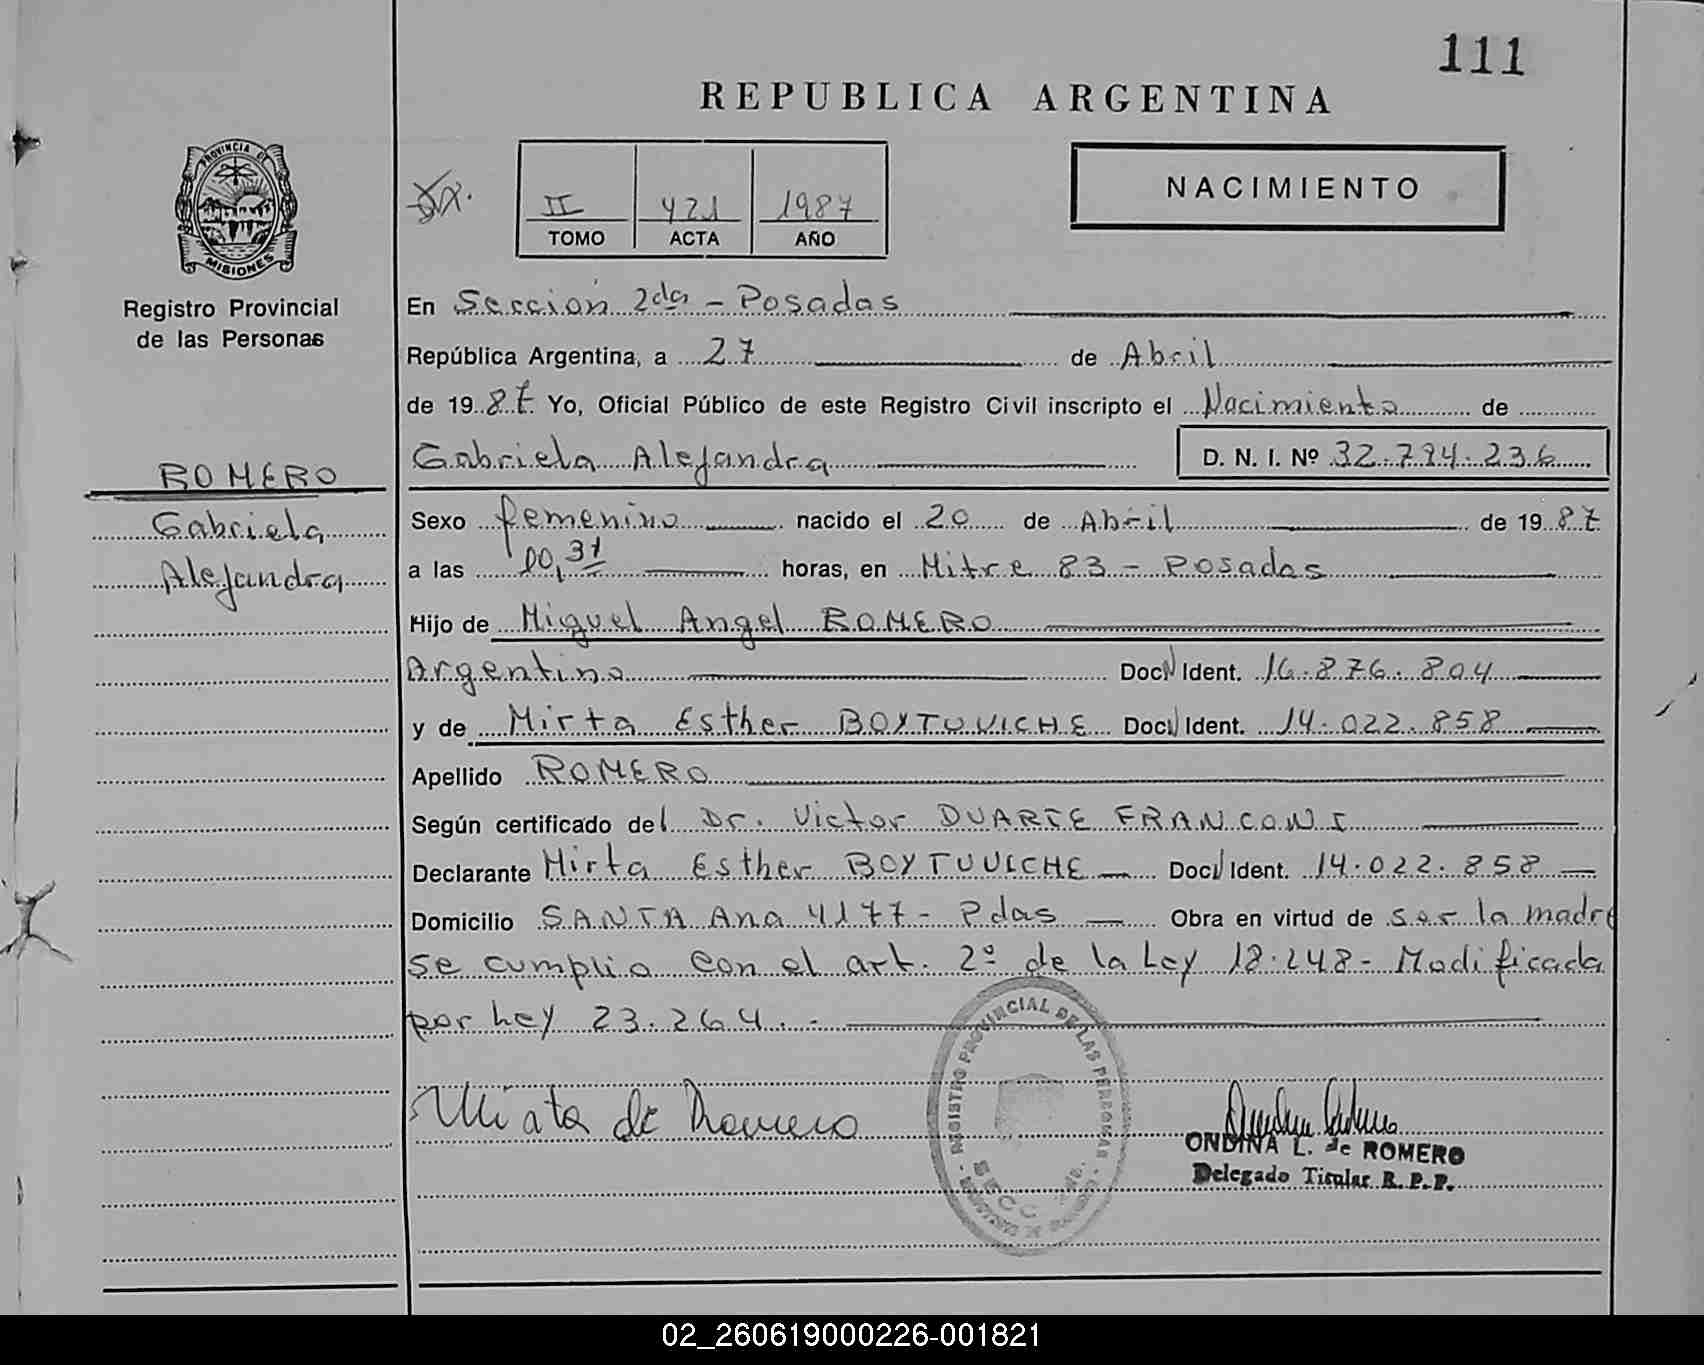 111
REPUBLICA ARGENTINA
PROVINCIA DE
MISIONES
Registro Provincial
de las Personas
II 421 1987
TOMO ACTA AÑO
NACIMIENTO
En Sección 2da - Posadas
República Argentina, a 27 de Abril
de 1987. Yo, Oficial Público de este Registro Civil inscripto el Nacimiento de
Gabriela Alejandra D. N. I. Nº 32.794.236
ROMERO
Gabriela
Alejandra
Sexo femenino nacido el 20 de Abril de 1987
a las 00,31 horas, en Mitre 83 - Posadas
Hijo de Miguel Angel ROMERO
Argentino Doc. Ident. 16.876.804
y de Mirta Esther BOYTUVICHE Doc. Ident. 14.022.858
Apellido ROMERO
Según certificado del Dr. Victor DUARTE FRANCONI
Declarante Mirta Esther BOYTUUICHE Doc. Ident. 14.022.858
Domicilio SANTA Ana 4177 - Pdas Obra en virtud de ser la madre
se cumplio con el art. 2º de la Ley 18.248 - Modificada
por Ley 23.264. -
REGISTRO PROVINCIAL DE LAS PERSONAS
SECC
de Romero
ONDINA L. de ROMERO
Delegado Titular R. P. P.
02_260619000226-001821